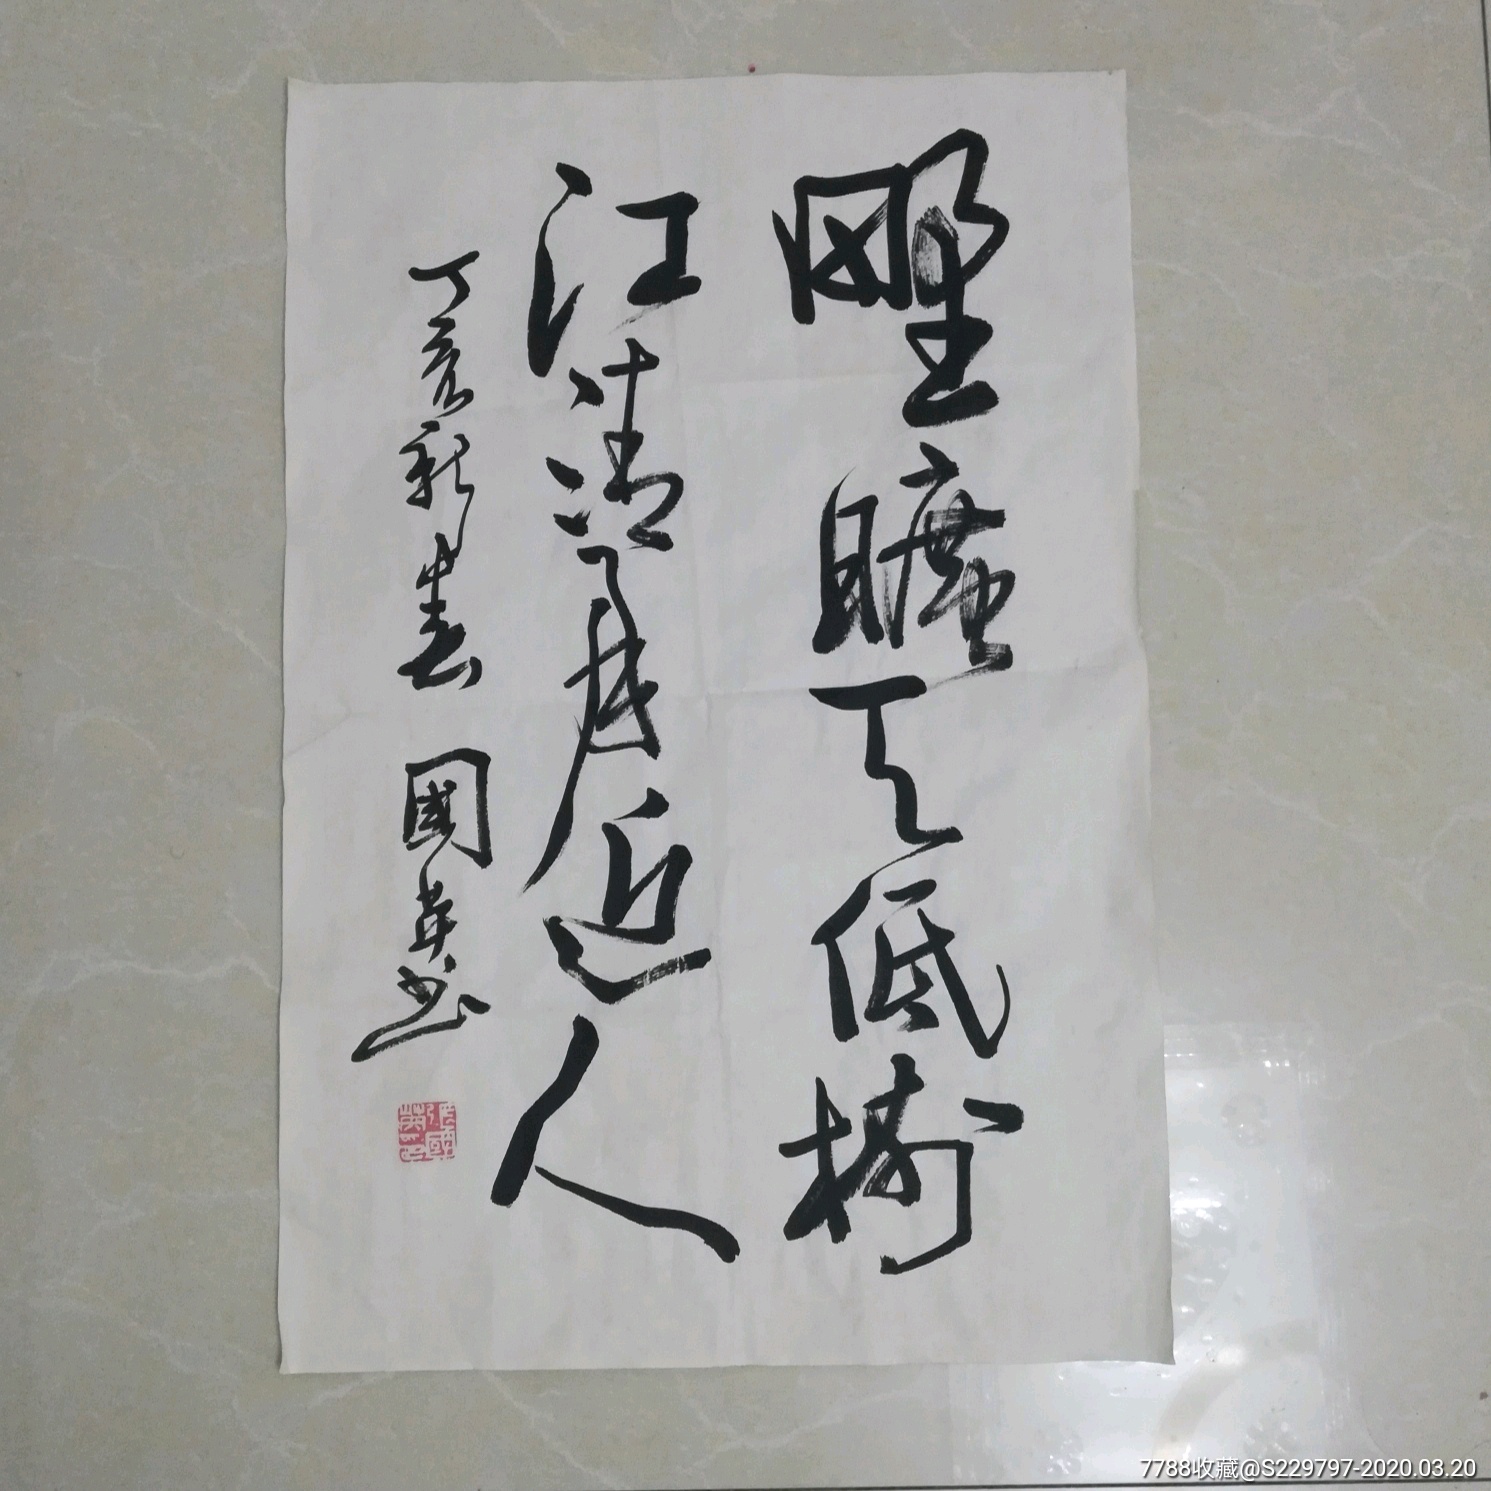 野曠天低樹
江清月近人
丁亥新春 國英书
張國英印
7788收藏@S229797-2020.03.20